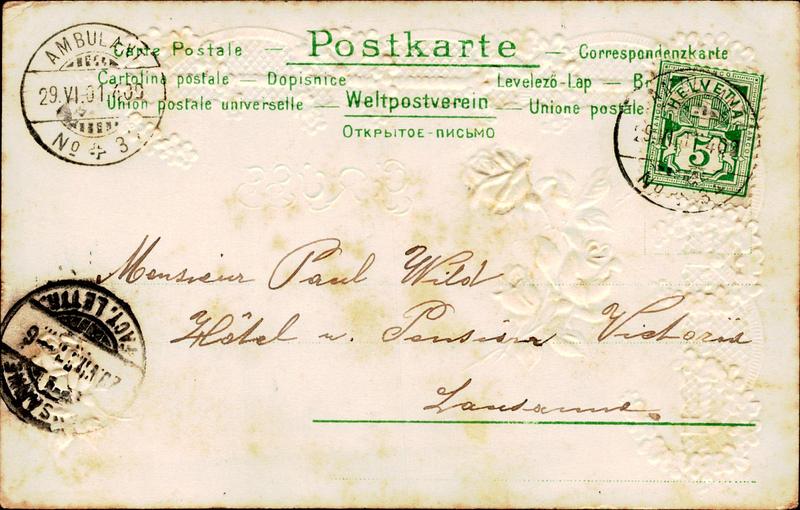 Carte Postale — Postkarte — Correspondenzkarte
Cartolina postale — Dopisnice
Levelező-Lap —
Union postale universelle — Weltpostverein — Unione postale
ОТКРЫТОЕ-ПИСЬМО
AMBULANT
29.VI.01
No 3
HELVETIA
5
No
Gruss
Monsieur Paul Wild
Hôtel u. Pension Victoria
Lausanne.
FACT. LETTR.